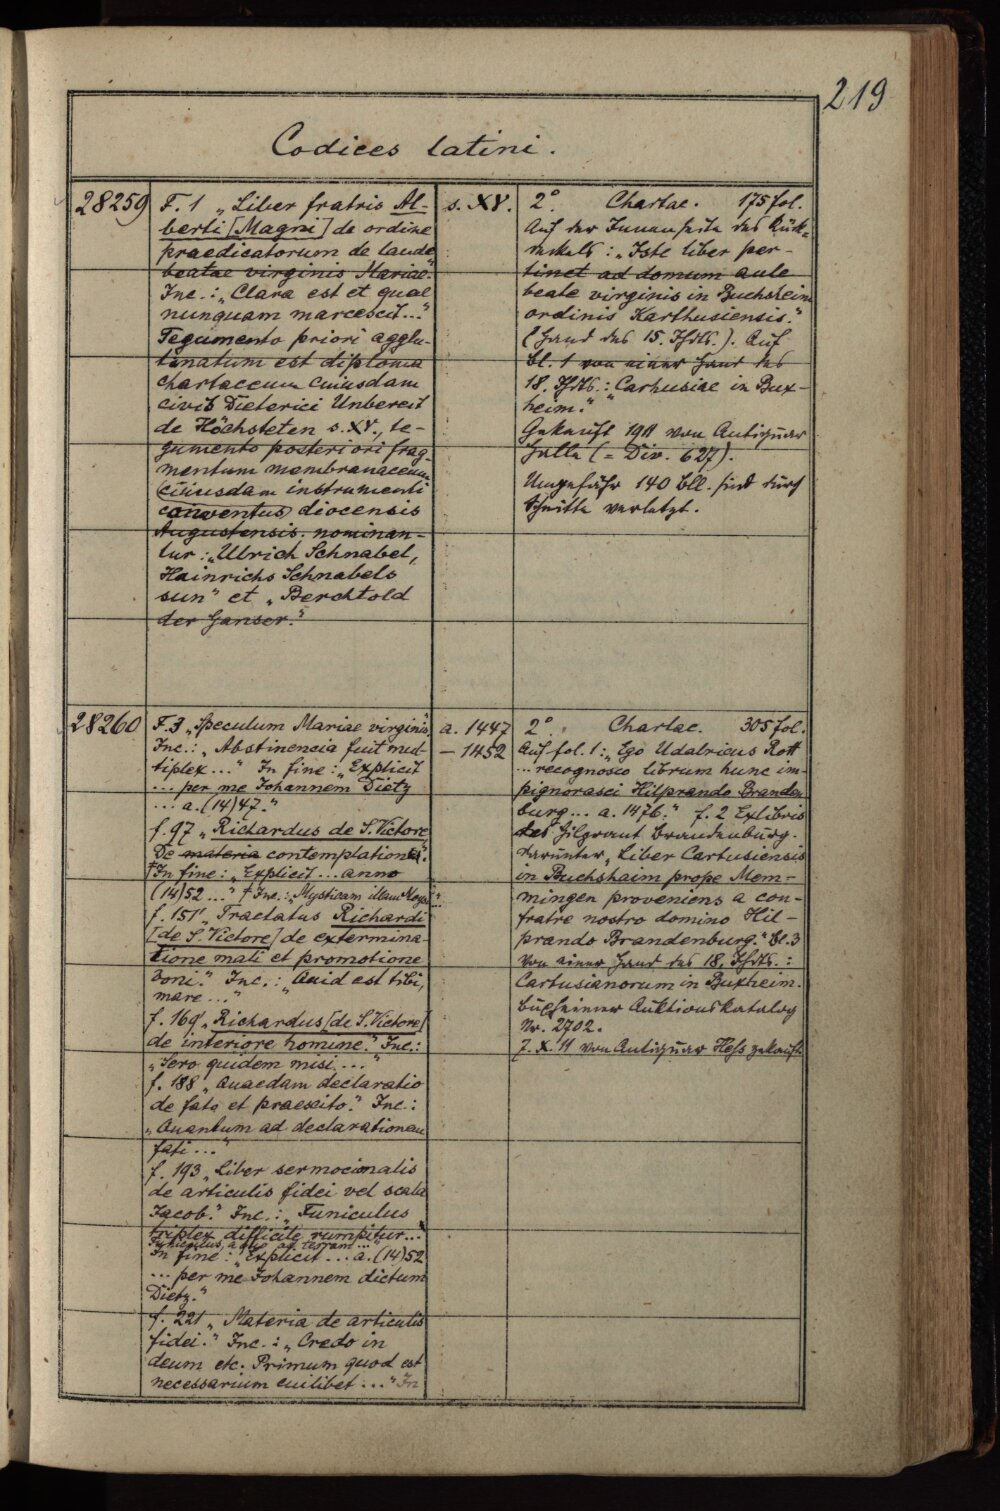 219
Codices latini.
28259
F. 1 „Liber fratris Al-
berti [Magni] de ordine
praedicatorum de laude
beatae virginis Mariae“
Inc.: „Clara est et quae
nunquam marcescit...“
Tegumento priori agglu-
tinatum est diploma
chartaceum cuiusdam
civis Dieterici Unbereit
de Höchsteten s. XV., te-
gumento posteriori frag-
mentum membranaceum
cuiusdam instrumenti
conventus diocensis
Augustensis. nominan-
tur: „Ulrich Schnabel,
Hainrichs Schnabels
sun“ et „Berchtold
der Ganser.“
s. XV.
2°. Chartac. 175 fol.
Auf der Innenseite des Rück-
deckels: „Iste liber per-
tinet ad domum aule
beate virginis in Buchsheim
ordinis Karthusiensis.“
(Hand des 15. Jhdts.). Auf
Bl. 1 von einer Hand des
18. Jhdts.: „Carhusiae in Bux-
heim.“
Gekauft 1911 von Antiquar
Halle (= Div. 627).
Ungefähr 140 Bll. sind durch
Schnitte verletzt.
28260
F. 3 „Speculum Mariae virginis“
Inc.: „Abstinencia fuit mul-
tiplex...“ In fine: „Explicit
... per me Johannem Dietz
... a. (14)47.“
f. 97 „Richardus de S. Victore
De materia contemplationis“.
† In fine: „Explicit... anno
(14)52 ...“ † Inc.: „Mysticam illam Moysi...“
f. 151' „Tractatus Richardi
[de S. Victore] de extermina-
tione mali et promotione
boni.“ Inc.: „Quid est tibi,
mare...“
f. 169' „Richardus [de S. Victore]
de interiore homine.“ Inc.:
„Sero quidem misi...“
f. 188 „Quaedam declaratio
de fato et praescito.“ Inc.:
„Quantum ad declarationem
fati...“
f. 193 „Liber sermocionalis
de articulis fidei vel scala
Jacob.“ Inc.: „Funiculus
triplex difficile rumpitur...“
In fine: „Explicit... a. (14)52
... per me Johannem dictum
Dietz.“
f. 221' „Materia de articulis
fidei.“ Inc.: „Credo in
deum etc. Primum quod est
necessarium cuilibet...“ In
a. 1447
– 1452
2°. Chartac. 305 fol.
Auf fol. 1: „Ego Udalricus Rott
... recognosco librum hunc im-
pignorasci Hilprando Branden
burg... a. 1476.“ f. 2 Exlibris
des Hilprant Brandenburg.
darunter „Liber Cartusiensis
in Buchshaim prope Mem-
mingen proveniens a con-
fratre nostro domino Hil-
prando Brandenburg.“ Bl. 3
von einer Hand des 18. Jhdts.:
Cartusianorum in Buxheim.
Buxheimer Auktionskatalog
Nr. 2702.
7. X. 11 von Antiquar Hess gekauft